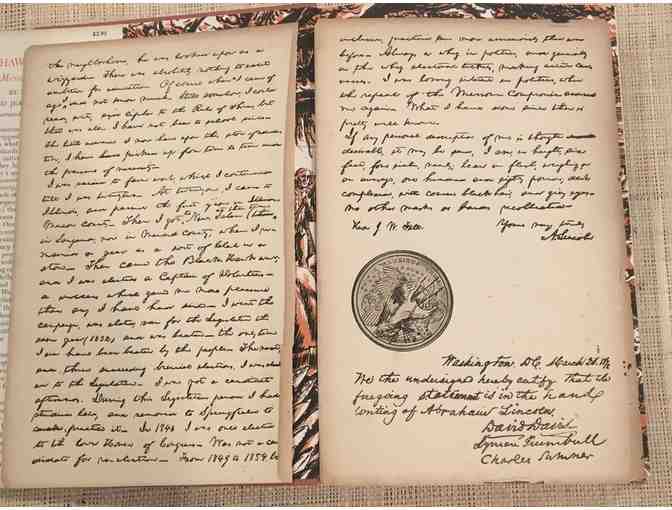 $3.95
HAW
the neighborhood, he was looked upon as a
wizzard. There was absolutely nothing to excite
ambition for education. Of course when I came of
age I did not know much. Still somehow, I could
read, write, and cipher to the Rule of Three; but
that was all. I have not been to school since.
The little advance I now have upon this store of educa-
tion, I have picked up from time to time under
the pressure of necessity.
I was raised to farm work, which I continued
till I was twenty two. At twenty one I came to
Illinois, and passed the first year in Illinois
Macon County. Then I got to New Salem (
in Sangamon, now in Menard County, where I re-
mained a year as a sort of Clerk in a
store. Then came the Black Hawk war,
and I was elected a Captain of Volunteers—
a success which gave me more pleasure
than any I have had since. I went the
campaign, was elated, ran for the Legislature the
same year (1832) and was beaten—the only time
I ever have been beaten by the people. The next,
and three succeeding biennial elections, I was elected
to the Legislature. I was not a candidate
afterwards. During this Legislative period I had
studied law, and removed to Springfield to
practise it. In 1846 I was once elected
to the lower House of Congress. Was not a can-
didate for re-election. From 1849 to 1854, bo
inclusive, practiced law more assiduously than ever
before. Always a whig in politics, and generally
on the whig electoral tickets, making active can-
vasses. I was losing interest in politics, when
the repeal of the Missouri Compromise aroused
me again. What I have done since then is
pretty well known.
If any personal description of me is thought
desirable, it may be said, I am, in height, six
feet, four inches, nearly; lean in flesh, weighing, on
an average, one hundred and eighty pounds; dark
complexion, with coarse black hair, and grey eyes—
No other marks or brands recollected
Hon. J. W. Fell. Yours very truly
A. Lincoln
Washington, DC. March 20,
We the undersigned hereby certify that the
foregoing statement is in the hand
writing of Abraham Lincoln.
David Davis
Lyman Trumbull
Charles Sumner